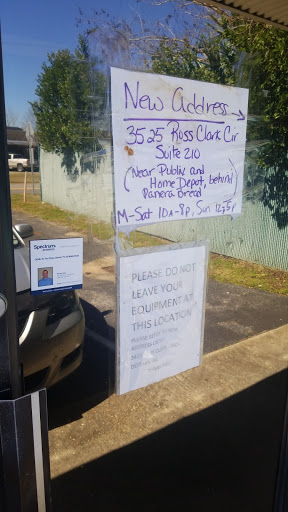 New Address →
3525 Russ Clark Cir
Suite 210
(Near Publix and
Home Depot, behind
Panera Bread)
M-Sat 10a-8p, Sun 12-5p
Spectrum
PLEASE DO NOT
LEAVE YOUR
EQUIPMENT AT
THIS LOCATION